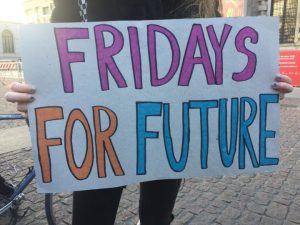 FRIDAYS
FOR FUTURE